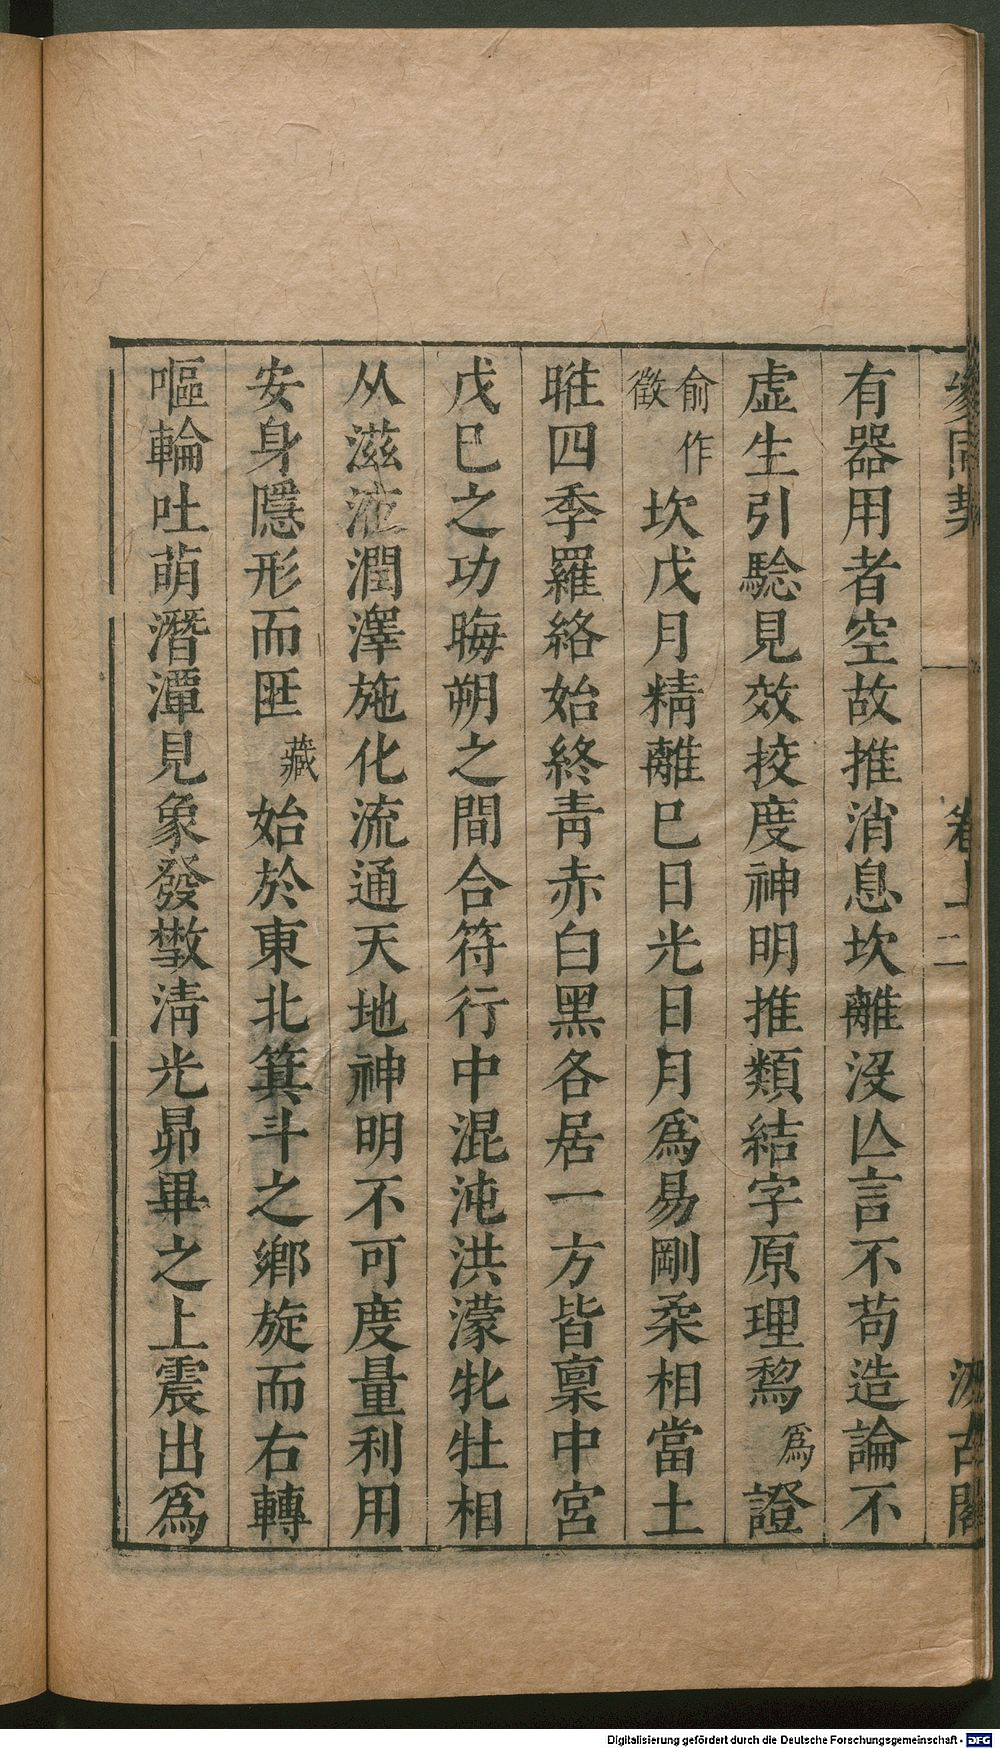 參同契 卷上 二 汲古閣
有器用者空故推消息坎離沒亾言不苟造論不
虛生引驗見效挍度神明推類結字原理為證
俞作徵坎戊月精離巳日光日月爲易剛柔相當土
眭四季羅絡始終青赤白黑各居一方皆稟中宮
戊巳之功晦朔之間合符行中混沌洪濛牝牡相
从滋液潤澤施化流通天地神明不可度量利用
安身隱形而匪藏始於東北箕斗之鄉旋而右轉
嘔輪吐萌潛潭見象發散淸光昴畢之上震出爲
Digitalisierung gefördert durch die Deutsche Forschungsgemeinschaft - DFG